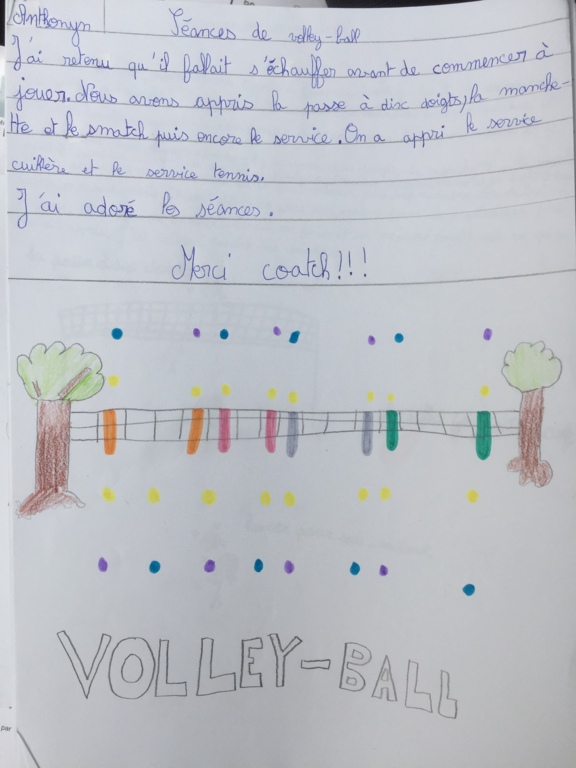 Anthonyn Séances de volley-ball
J'ai retenu qu'il fallait s'échauffer avant de commencer à
jouer. Nous avons appris la passe à disc doigts, la manche-
tte et le smatch puis encore le service. On a appri le service
cuillère et le service tennis.
J'ai adoré les séances.
Merci coatch!!!
VOLLEY-BALL
par